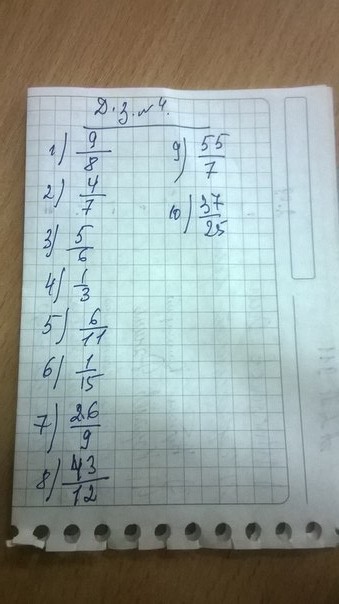 Д.З. №4.
1) 9/8
2) 4/7
3) 5/6
4) 1/3
5) 6/11
6) 1/15
7) 26/9
8) 43/12
9) 55/7
10) 37/25